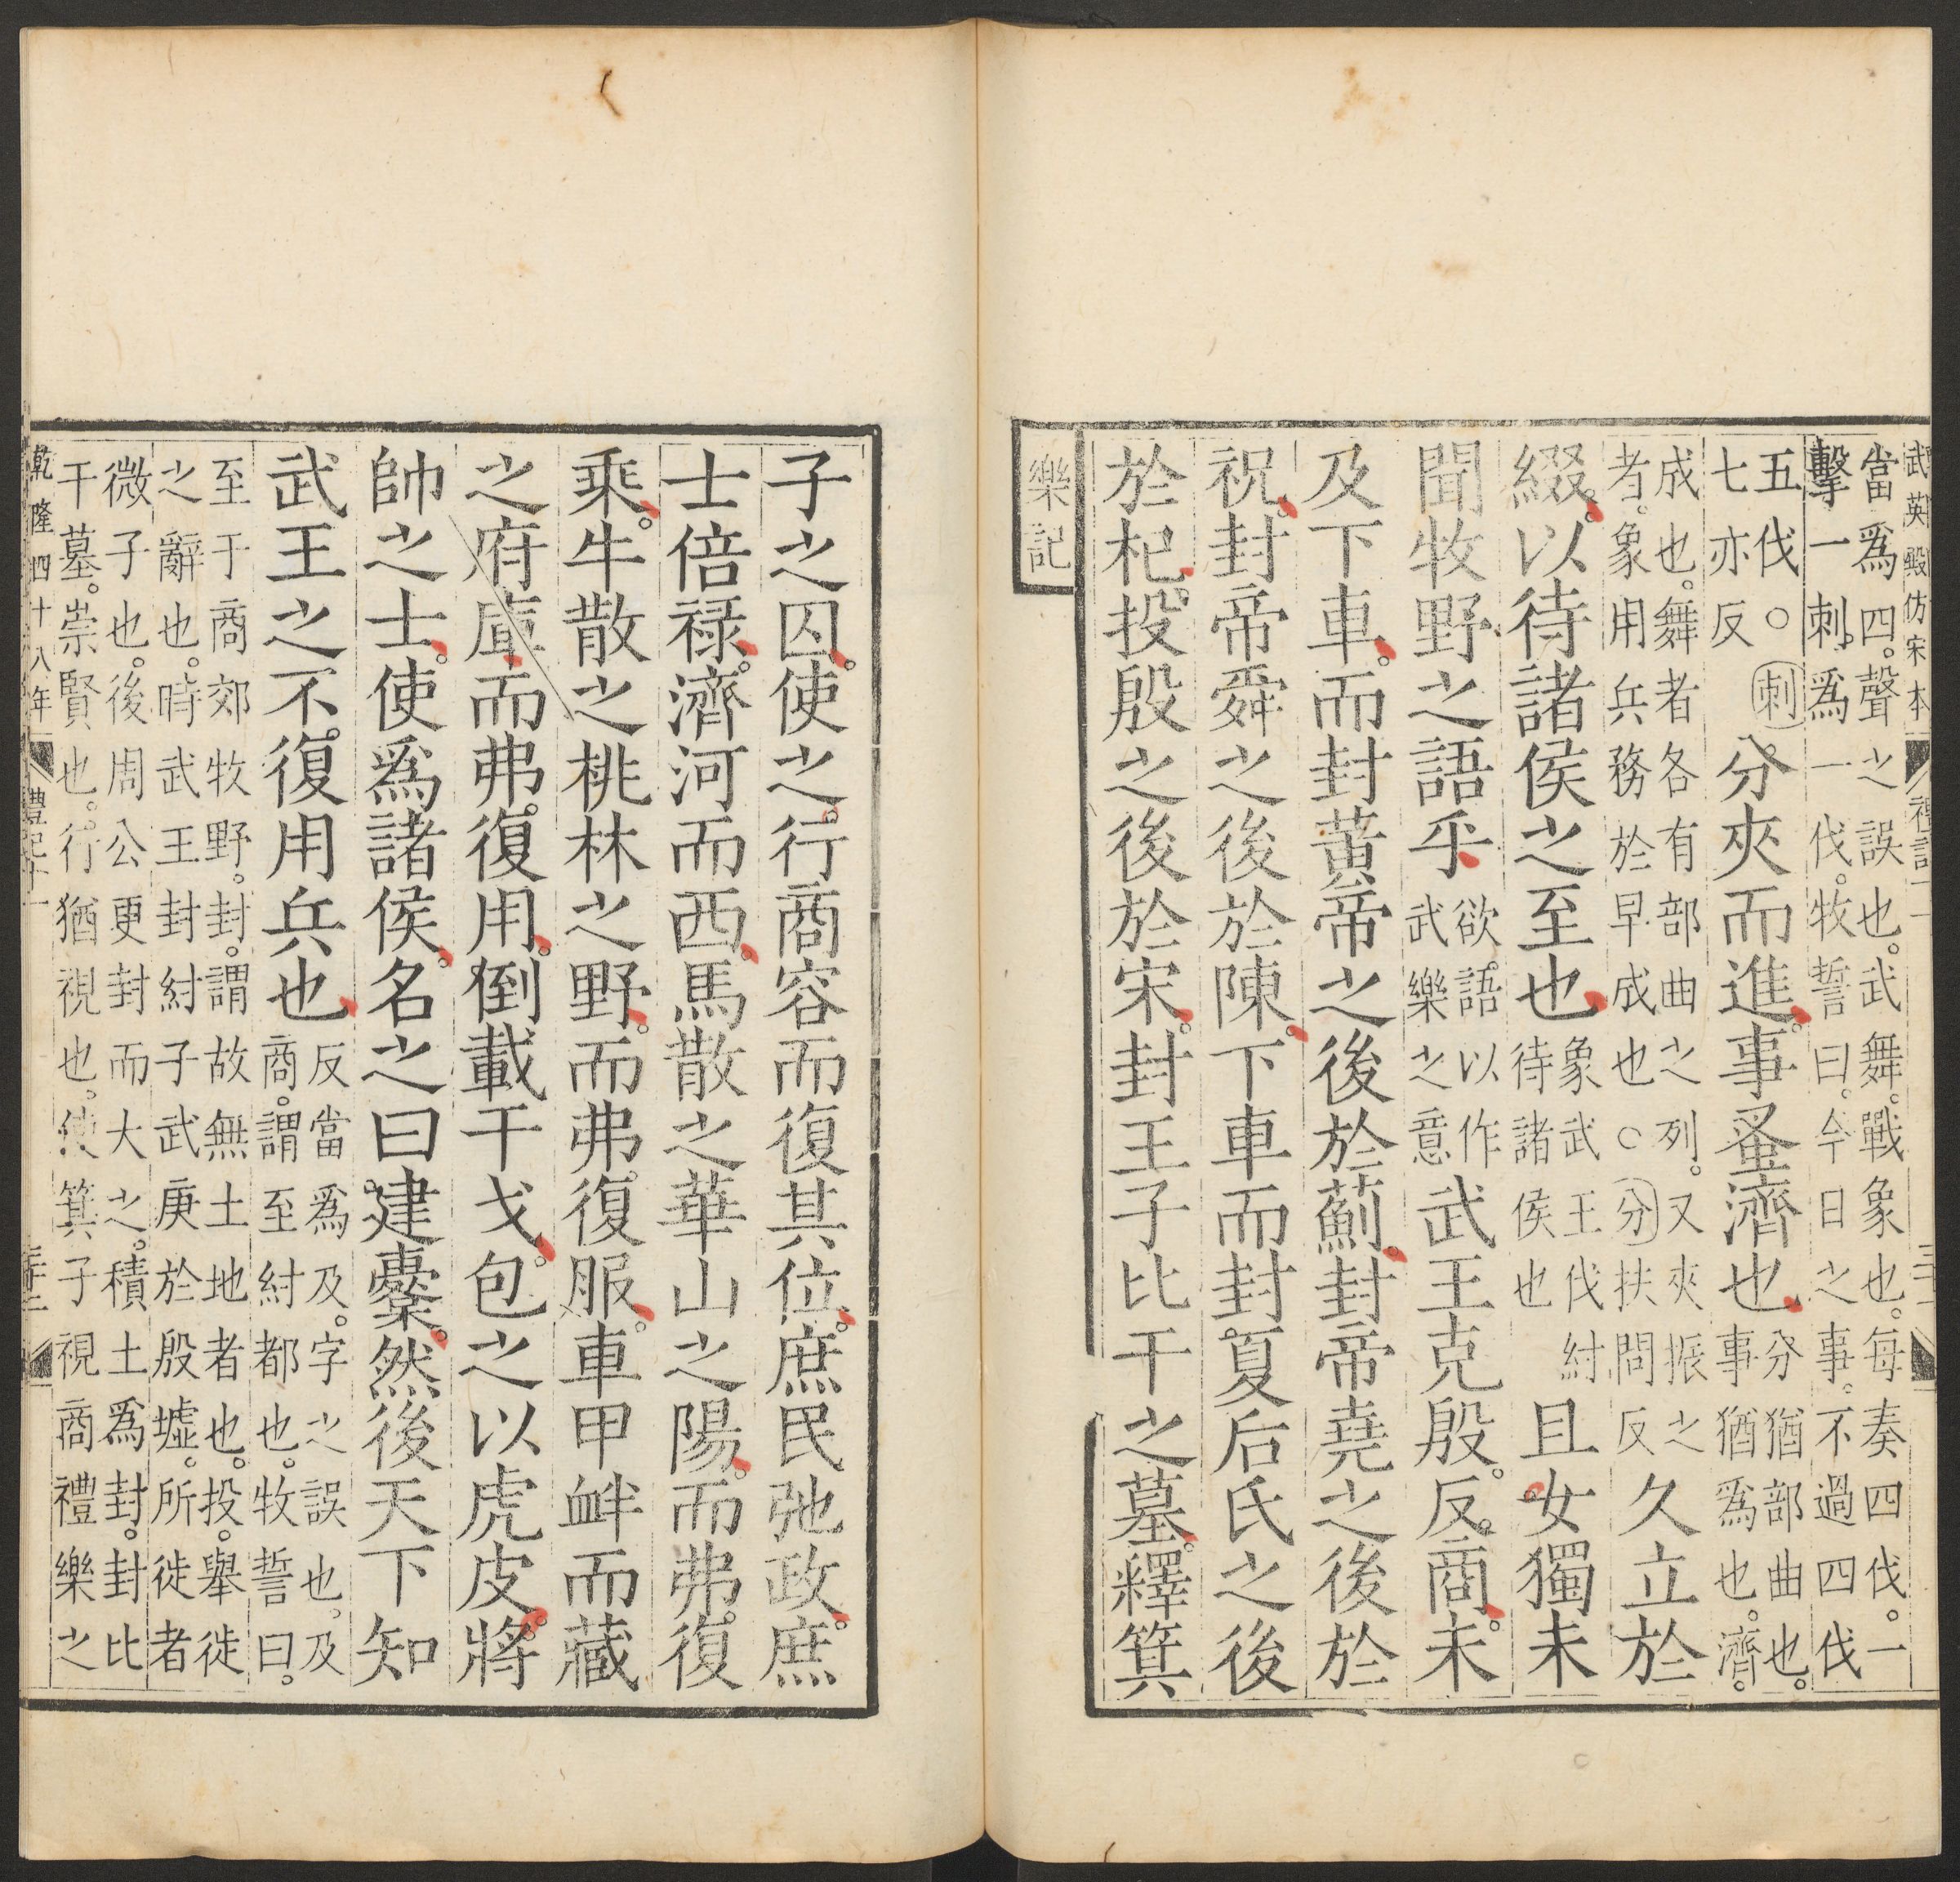 武英殿仿宋本 禮記
當爲四。聲之誤也。武舞。戰象也。每奏四伐。一
擊一刺。爲一伐。牧誓曰。今日之事。不過四伐
五伐。○刺
七亦反
分夾而進。事蚤濟也。
分猶部曲也。
事猶爲也。濟。
成也。舞者各有部曲之列。又夾振之
者。象用兵務於早成也○分扶問反
久立於
綴。以待諸侯之至也。
象武王伐紂
待諸侯也
且女獨未
聞牧野之語乎。
欲語以作
武樂之意
武王克殷。反商。未
及下車。而封黃帝之後於薊。封帝堯之後於
祝。封帝舜之後於陳。下車而封夏后氏之後
於杞。投殷之後於宋。封王子比干之墓。釋箕
樂記
子之囚。使之行商容而復其位。庶民弛政。庶
士倍祿。濟河而西。馬散之華山之陽。而弗復
乘。牛散之桃林之野。而弗復服。車甲衅而藏
之府庫。而弗復用。倒載干戈。包之以虎皮。將
帥之士。使爲諸侯。名之曰建櫜。然後天下知
武王之不復用兵也。
反當爲及。字之誤也。及
商。謂至紂都也。牧誓曰。
至于商郊牧野。封。謂故無土地者也。投。舉徙
之辭也。時武王封紂子武庚於殷墟。所徙者
微子也。後周公更封而大之。積土爲封。封比
干墓。崇賢也。行猶視也。使箕子視商禮樂之
乾隆四十八年 禮記十一